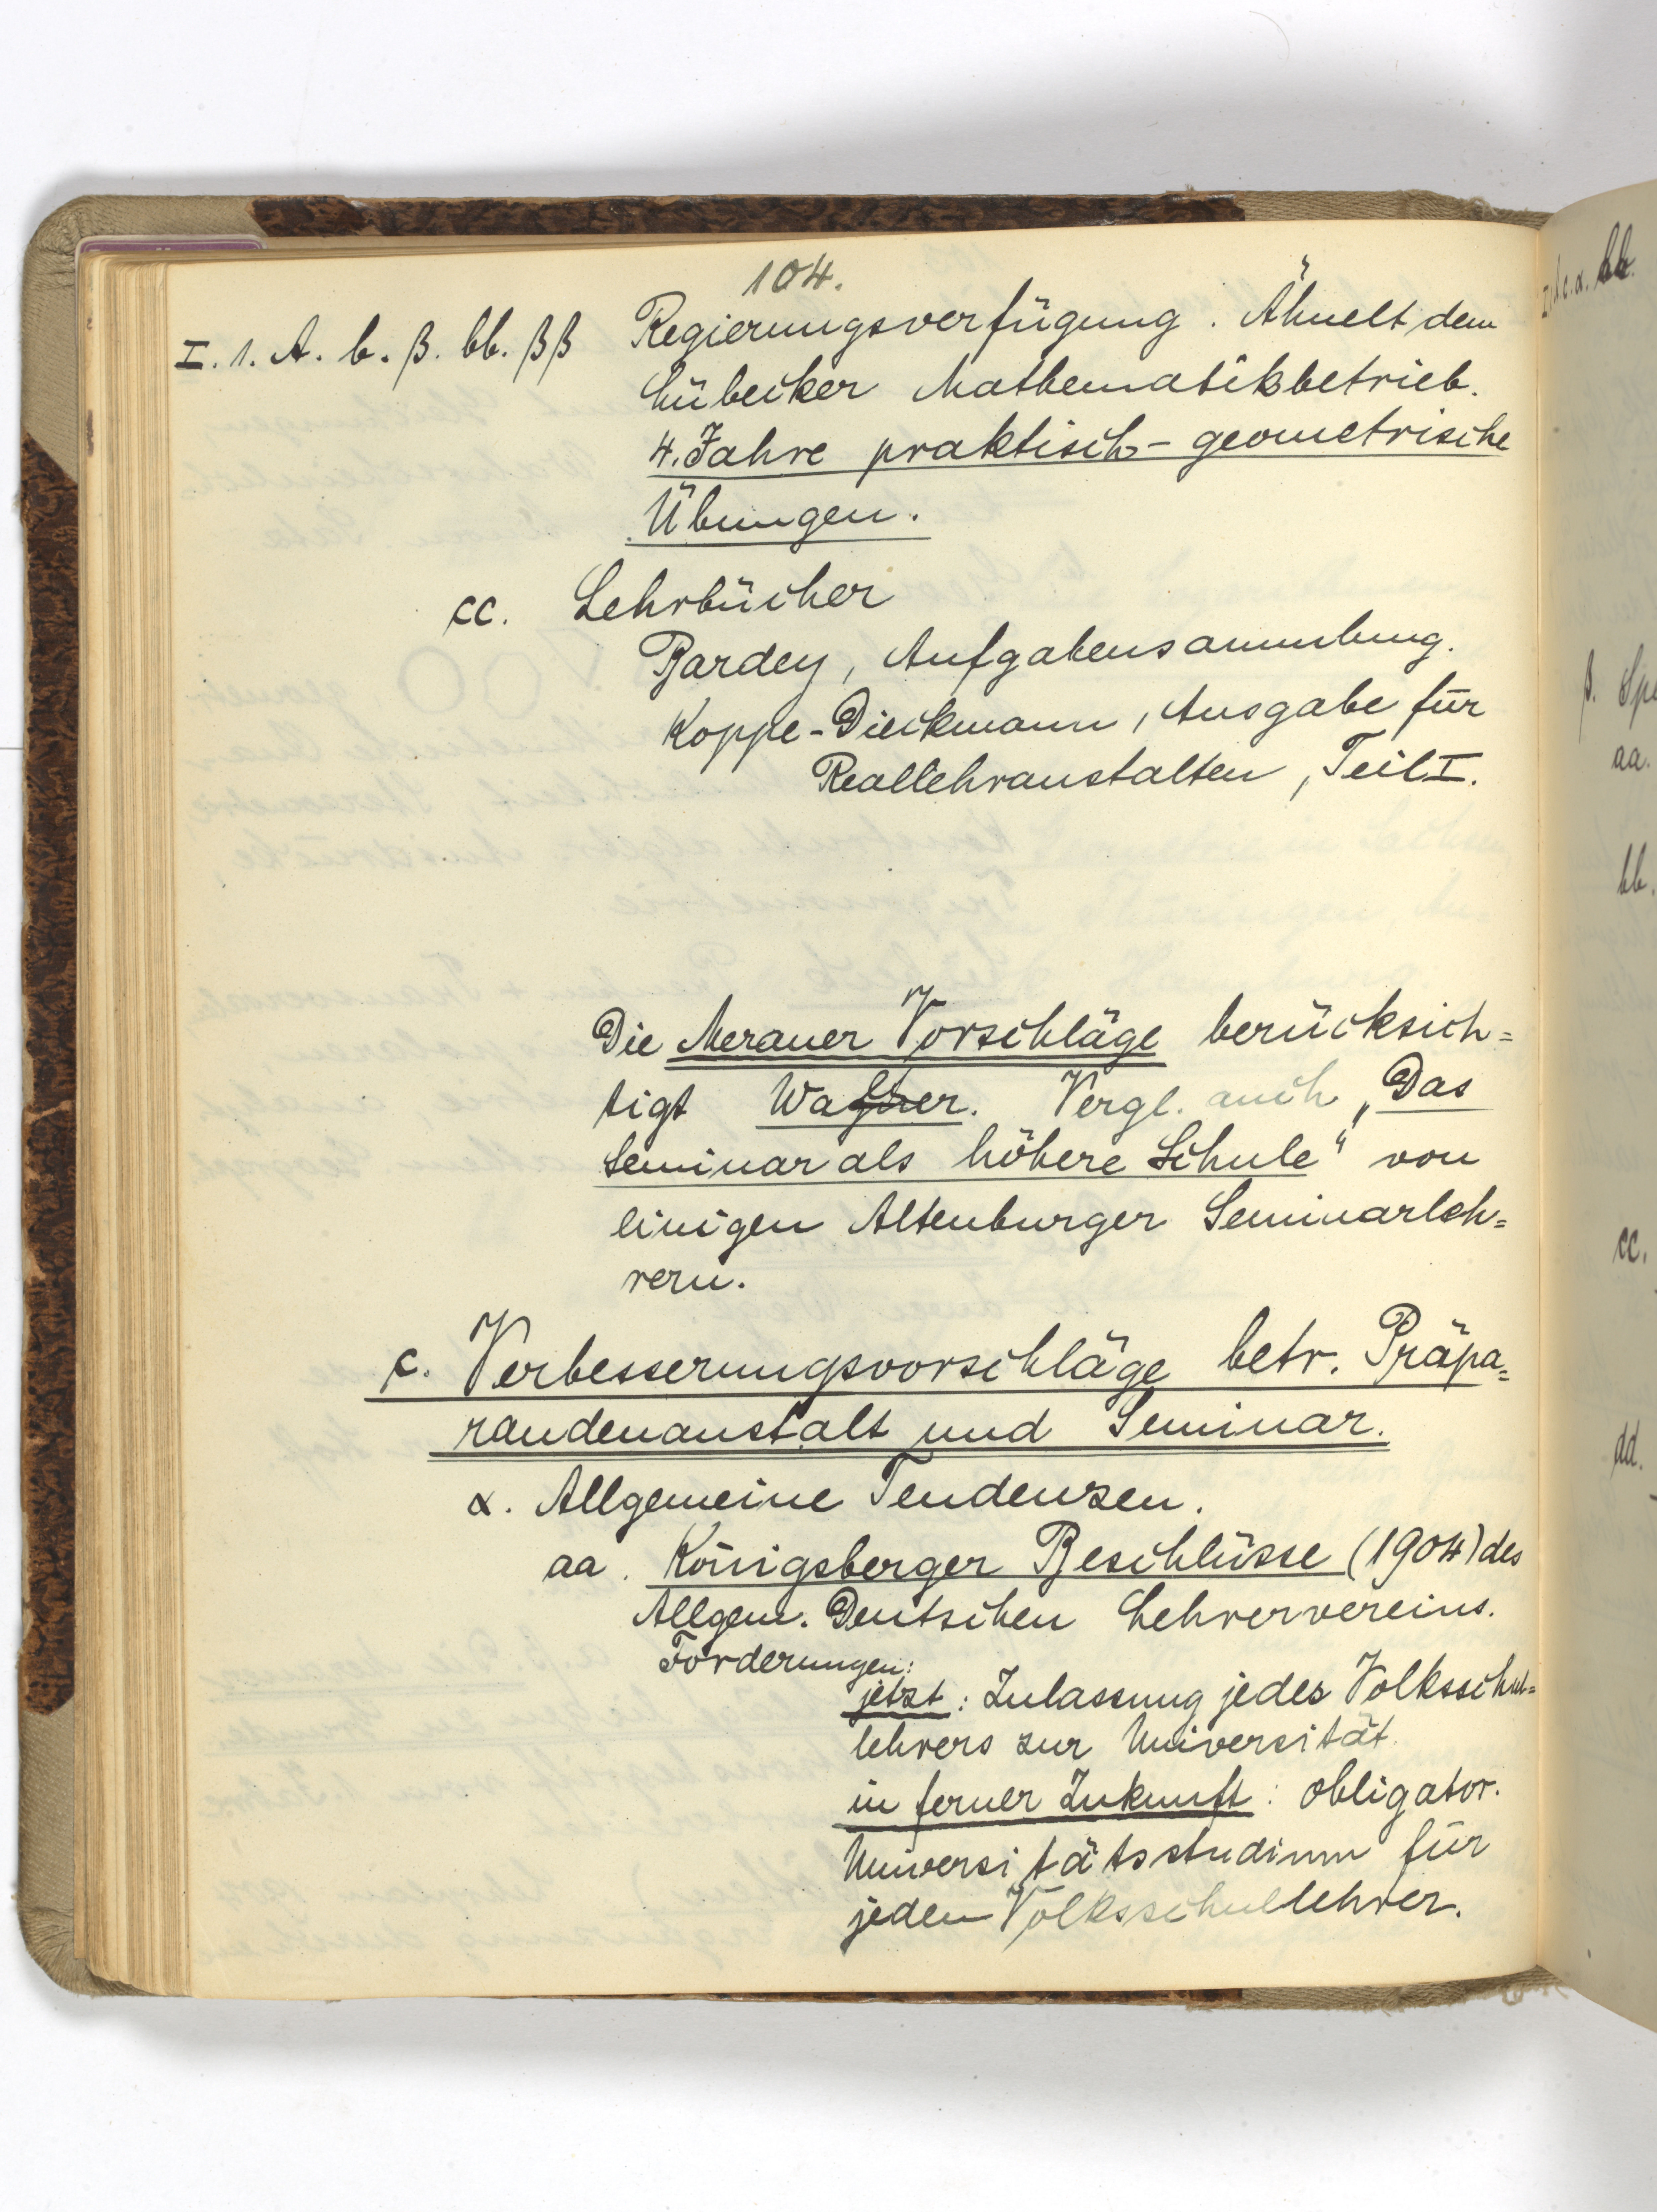 104.
I. 1. A. b. β. bb. ββ Regierungsverfügung. Ähnelt dem
Lübecker Mathematikbetrieb.
4. Jahre praktisch-geometrische
Übungen.
cc. Lehrbücher
Bardey, Aufgabensammlung.
Koppe-Dieckmann, Ausgabe für
Reallehranstalten, Teil I.
Die Meraner Vorschläge berücksich=
tigt
Vergl. auch „Das
Seminar als höhere Schule" von
einigen Altenburger Seminarleh=
rern.
c. Verbesserungsvorschläge betr. Präpa=
randenanstalt und Seminar.
α. Allgemeine Tendenzen.
aa. Königsberger Beschlüsse (1904) des
Allgem. Deutschen Lehrervereins.
Forderungen:
jetzt: Zulassung jedes Volksschul=
lehrers zur Universität.
in ferner Zukunft: obligator.
Universitätsstudium für
jeden Volksschullehrer.
β.
aa.
bb.
cc.
dd.